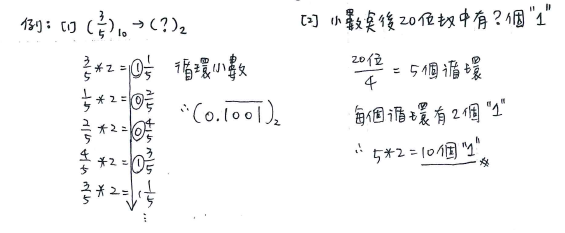 例: [1] (3/5)₁₀ → (?)₂
3/5 * 2 = ① 1/5
1/5 * 2 = ⓪ 2/5
2/5 * 2 = ⓪ 4/5
4/5 * 2 = ① 3/5
3/5 * 2 = 1 1/5
⋮
循環小數
∴ (0.1̅0̅0̅1̅)₂
[2] 小數點後20位數中有?個"1"
20位/4 = 5個循環
每個循環有2個"1"
∴ 5*2 = 10個"1" ※